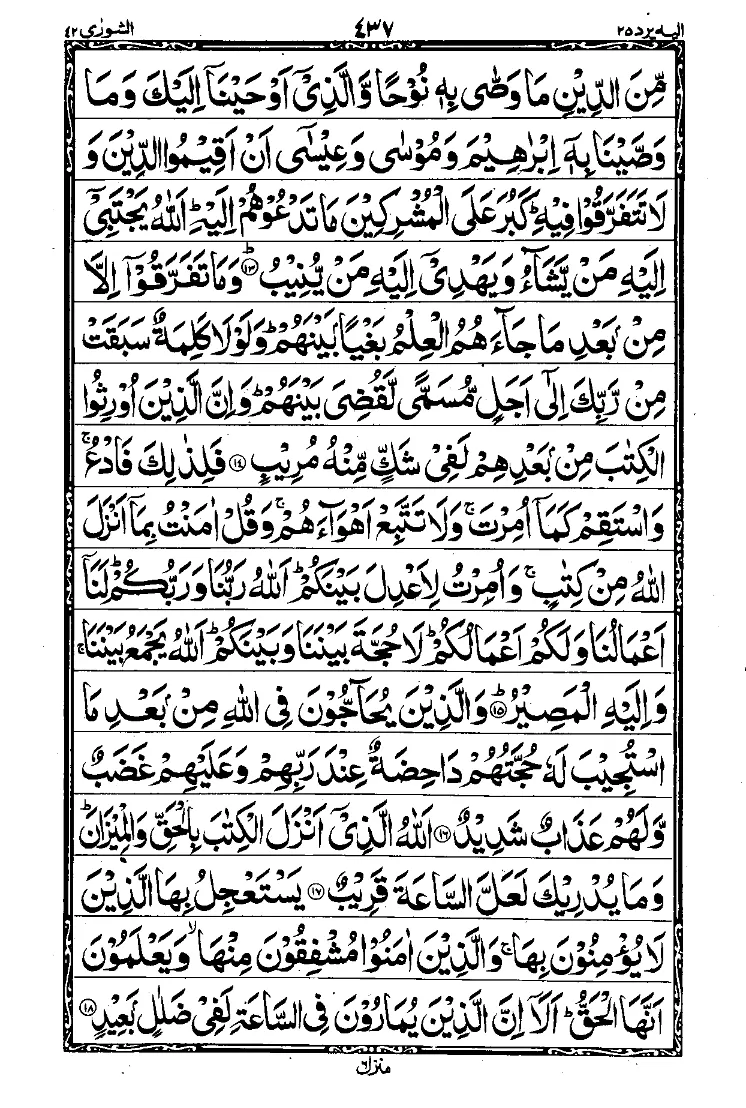 الشورٰی ٤٢ ٤٣٧ الیه یرد ٢٥
مِّنَ الدِّيْنِ مَا وَصّٰى بِهٖ نُوْحًا وَّالَّذِيْۤ اَوْحَيْنَاۤ اِلَيْكَ وَمَا
وَصَّيْنَا بِهٖۤ اِبْرٰهِيْمَ وَمُوْسٰى وَعِيْسٰۤى اَنْ اَقِيْمُوا الدِّيْنَ وَ
لَا تَتَفَرَّقُوْا فِيْهِ ؕ كَبُرَ عَلَى الْمُشْرِكِيْنَ مَا تَدْعُوْهُمْ اِلَيْهِ ؕ اَللّٰهُ يَجْتَبِيْۤ
اِلَيْهِ مَنْ يَّشَآءُ وَيَهْدِيْۤ اِلَيْهِ مَنْ يُّنِيْبُ ؕ ﴿١٣﴾ وَمَا تَفَرَّقُوْۤا اِلَّا
مِنْۢ بَعْدِ مَا جَآءَهُمُ الْعِلْمُ بَغْيًۢا بَيْنَهُمْ ؕ وَلَوْلَا كَلِمَةٌ سَبَقَتْ
مِنْ رَّبِّكَ اِلٰۤى اَجَلٍ مُّسَمًّى لَّقُضِيَ بَيْنَهُمْ ؕ وَاِنَّ الَّذِيْنَ اُوْرِثُوا
الْكِتٰبَ مِنْۢ بَعْدِهِمْ لَفِيْ شَكٍّ مِّنْهُ مُرِيْبٍ ﴿١٤﴾ فَلِذٰلِكَ فَادْعُ ۚ
وَاسْتَقِمْ كَمَاۤ اُمِرْتَ ۚ وَلَا تَتَّبِعْ اَهْوَآءَهُمْ ۚ وَقُلْ اٰمَنْتُ بِمَاۤ اَنْزَلَ
اللّٰهُ مِنْ كِتٰبٍ ۚ وَاُمِرْتُ لِاَعْدِلَ بَيْنَكُمْ ؕ اَللّٰهُ رَبُّنَا وَرَبُّكُمْ ؕ لَنَاۤ
اَعْمَالُنَا وَلَكُمْ اَعْمَالُكُمْ ؕ لَا حُجَّةَ بَيْنَنَا وَبَيْنَكُمْ ؕ اَللّٰهُ يَجْمَعُ بَيْنَنَا ۚ
وَاِلَيْهِ الْمَصِيْرُ ؕ ﴿١٥﴾ وَالَّذِيْنَ يُحَآجُّوْنَ فِي اللّٰهِ مِنْۢ بَعْدِ مَا
اسْتُجِيْبَ لَهٗ حُجَّتُهُمْ دَاحِضَةٌ عِنْدَ رَبِّهِمْ وَعَلَيْهِمْ غَضَبٌ
وَّلَهُمْ عَذَابٌ شَدِيْدٌ ﴿١٦﴾ اَللّٰهُ الَّذِيْۤ اَنْزَلَ الْكِتٰبَ بِالْحَقِّ وَالْمِيْزَانَ ؕ
وَمَا يُدْرِيْكَ لَعَلَّ السَّاعَةَ قَرِيْبٌ ﴿١٧﴾ يَسْتَعْجِلُ بِهَا الَّذِيْنَ
لَا يُؤْمِنُوْنَ بِهَا ۚ وَالَّذِيْنَ اٰمَنُوْا مُشْفِقُوْنَ مِنْهَا ۙ وَيَعْلَمُوْنَ
اَنَّهَا الْحَقُّ ؕ اَلَاۤ اِنَّ الَّذِيْنَ يُمَارُوْنَ فِي السَّاعَةِ لَفِيْ ضَلٰلٍۢ بَعِيْدٍ ﴿١٨﴾
منزل ٦